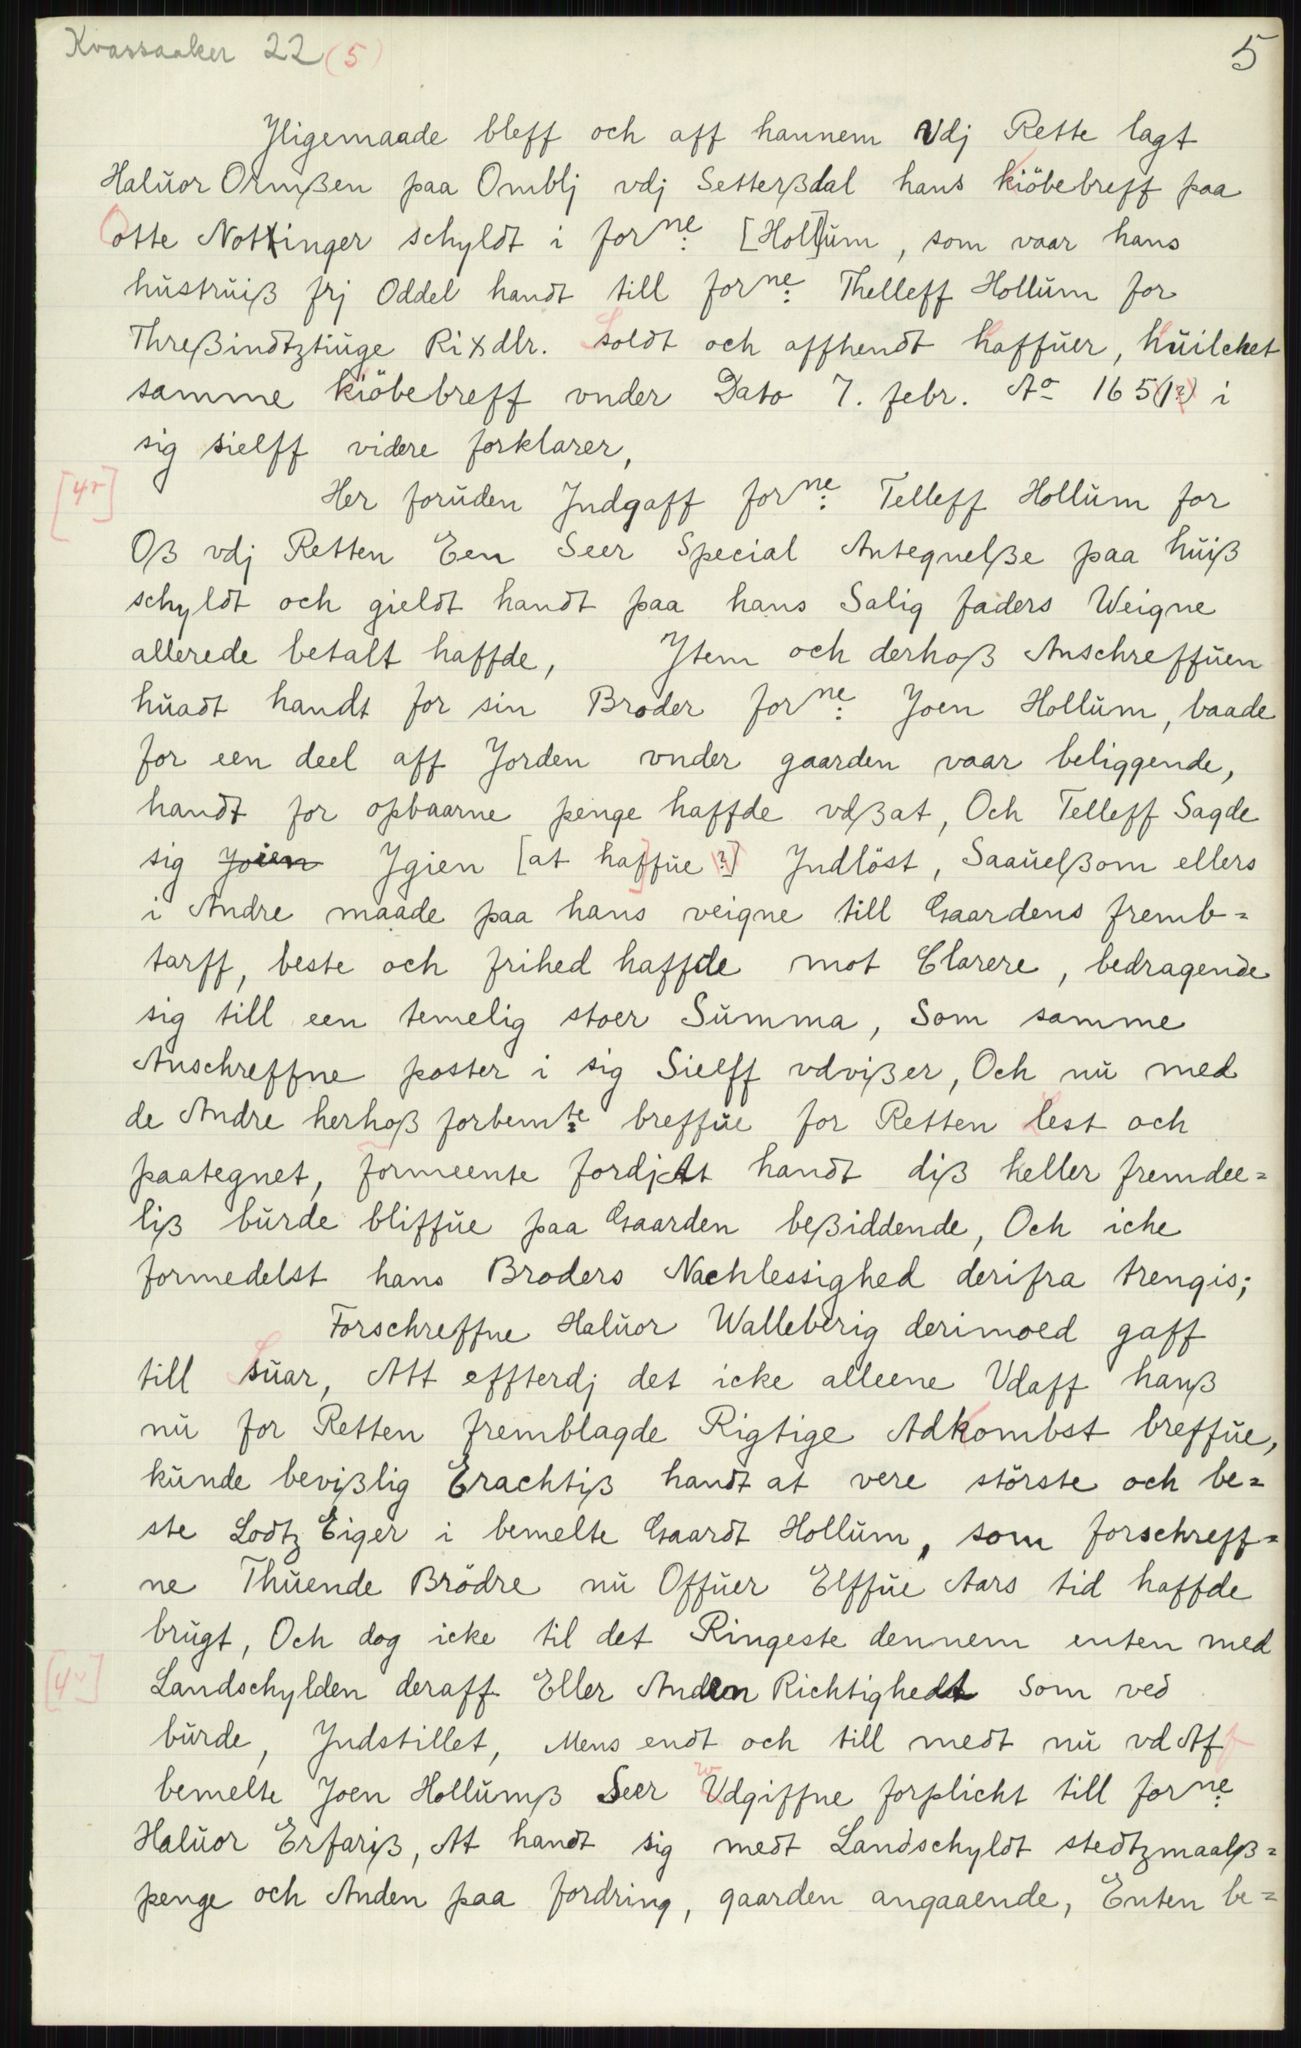 Kvassaaker 22 (5)
5
Yligemaade bleff och aff hannem Vdj Rette lagt
Haluor Ormßen paa Omblj vdj Setterßdal hans kiöbebreff paa
Otte Nottinger schyldt i forne: [Holl]um, som vaar hans
hustruiß frj Oddel handt till forne: Thelleff Hollum for
Threßindtztiuge Rixdlr. Soldt och affhendt haffuer, huilcket
samme kiöbebreff vnder Dato 7. febr. Ao 165(1?) i
sig sielff videre forklarer,
[4r]
Her foruden Jndgaff forne: Telleff Hollum for
Oß vdj Retten Een Seer Special Antegnelße paa huiß
schyldt och gieldt handt paa hans Salig faders Weigne
allerede betalt haffde, Ytem och derhoß Anschreffuen
huadt handt for sin Broder forne: Joen Hollum, baade
for een deel aff Jorden vnder gaarden vaar beliggende,
handt for opbaarne penge haffde vdßat, Och Telleff Sagde
sig Ygien [at haffue ?] Jndlöst, Saauelßom ellers
i Andre maade paa hans veigne till Gaardens fremb=
tarff, beste och frihed haffde mot Clarere, bedragende
sig till een temelig stoer Summa, Som samme
Anschreffne poster i sig Sielff vdvißer, Och nu med
de Andre herhoß forbemte: breffue for Retten lest och
paategnet, formeente fordj At handt diß heller fremdee=
liß burde bliffue paa Gaarden beßiddende, Och iche
formedelst hans Broders Nachlessighed derifra trengis;
Forschreffne Haluor Walleberig derimoed gaff
till Suar, Att effterdj det icke alleene Vdaff hanß
nu for Retten fremblagde Rigtige Adkombst breffue,
kunde bevißlig Erachtiß handt at vere störste och be=
ste Lodtz Eiger i bemelte Gaardt Hollum, som forschreff=
ne Thuende Brödre nu Offuer Elffue Aars tid haffde
brugt, Och dog icke til det Ringeste dennem enten med
[4v]
Landschylden deraff Eller Anden Richtighedt Som ved
burde, Jndstillet, Mens endt och till medt nu vd Aff
bemelte Joen Hollumß Seer Vdgiffne forplicht till forne:
Haluor Erfariß, At handt sig medt Landschyldt stedtzmaalß=
penge och Anden paa fordring, gaarden angaaende, Enten be=